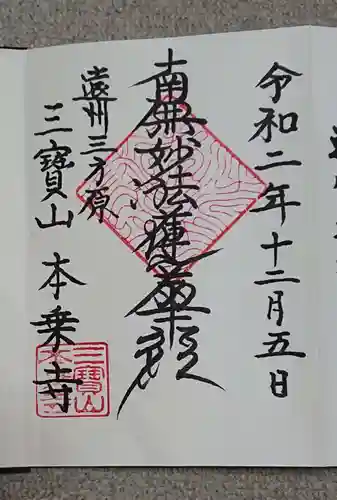 令和二年十二月五日
南無妙法蓮華経
遠州三方原
三寶山 本乗寺
三寶山
本乗寺